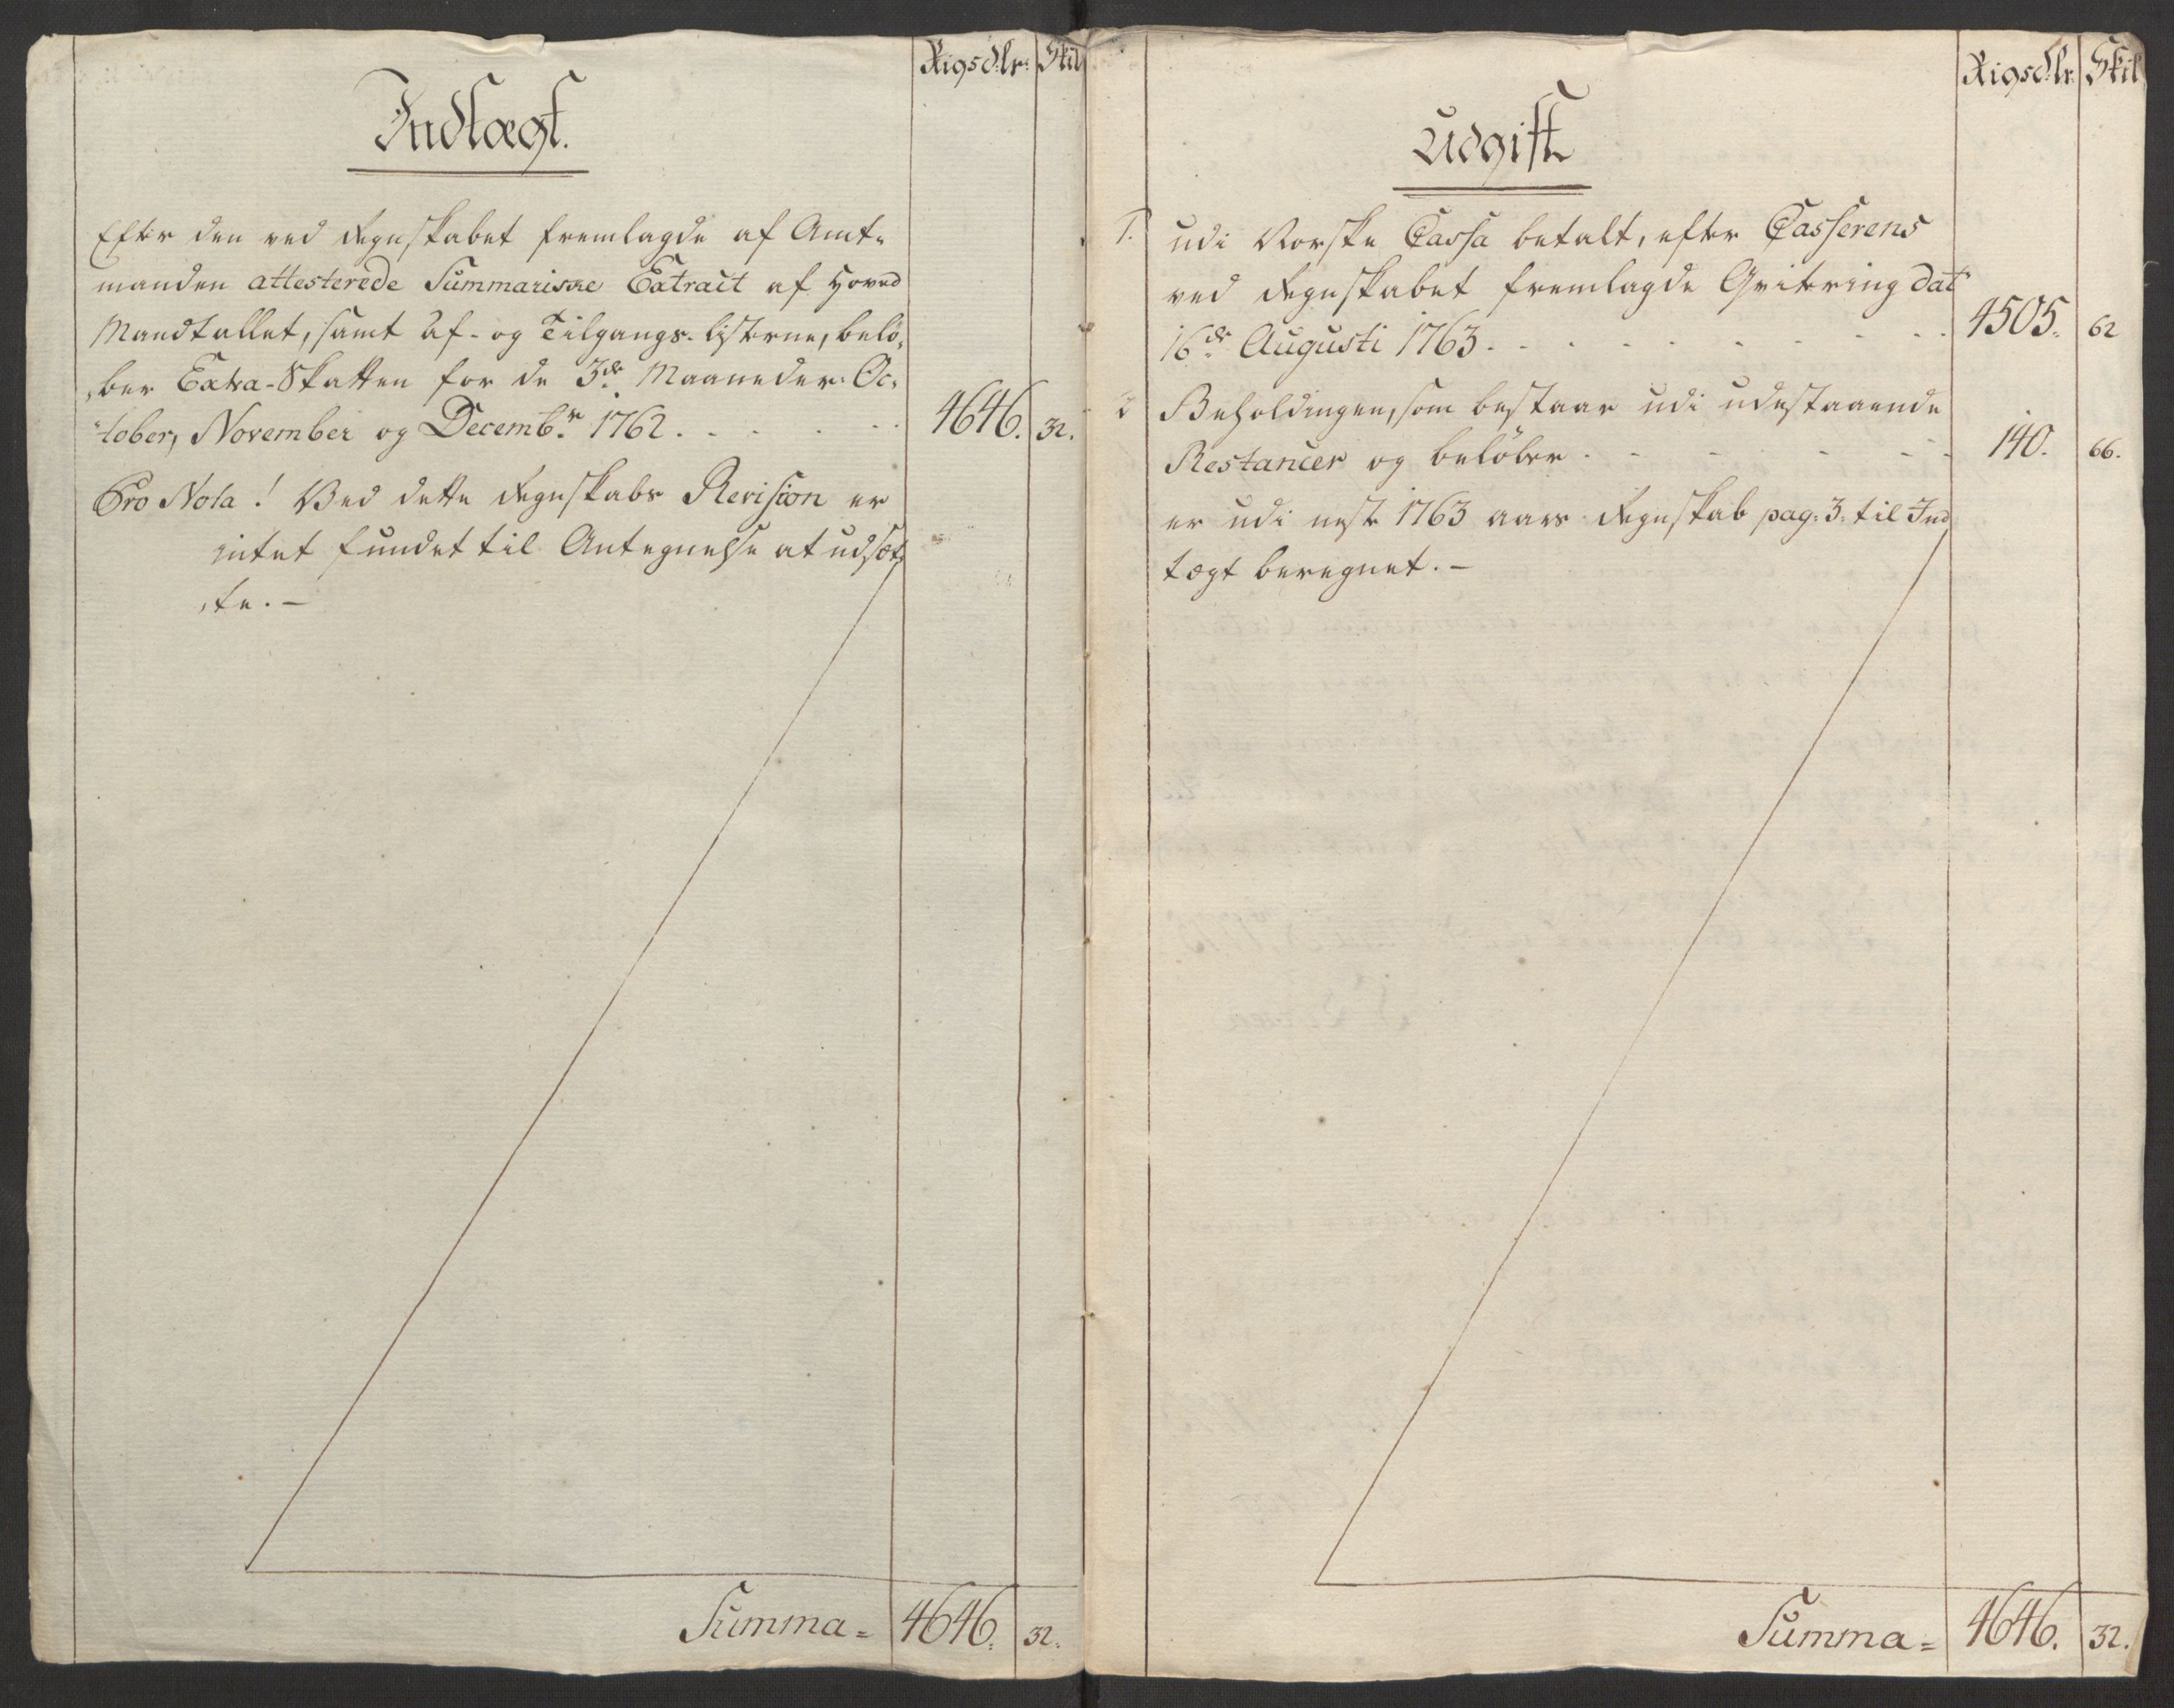 Rigsdlr: Skil
Indtægt.
Efter den ved Regnskabet fremlagde af Amt-
manden attesterede Summariske Extract af Hoved
Mandtallet, samt Af- og Tilgangs-Listerne, belø-
ber Extra-Skatten for de 3de Maaneder: Oc-
tober, November og Decembr. 1762. 4646. 32.
Pro Nota! Ved dette Regnskabs Revision er
intet fundet til Antegnelse at udsæt-
te. -
Summa = 4646. 32.
Rigsdlr. Skil
Udgift
1. udi Norske Cassa betalt, efter Casserens
ved Regnskabet fremlagde Qvitering dat
16de Augusti 1763. 4505. 62
2 Beholdingen, som bestaar udi udestaaende
Restancer og beløber 140. 66.
er udi nest 1763 aars Regnskab pag: 3. til Ind
tægt beregnet. -
Summa = 4646. 32.